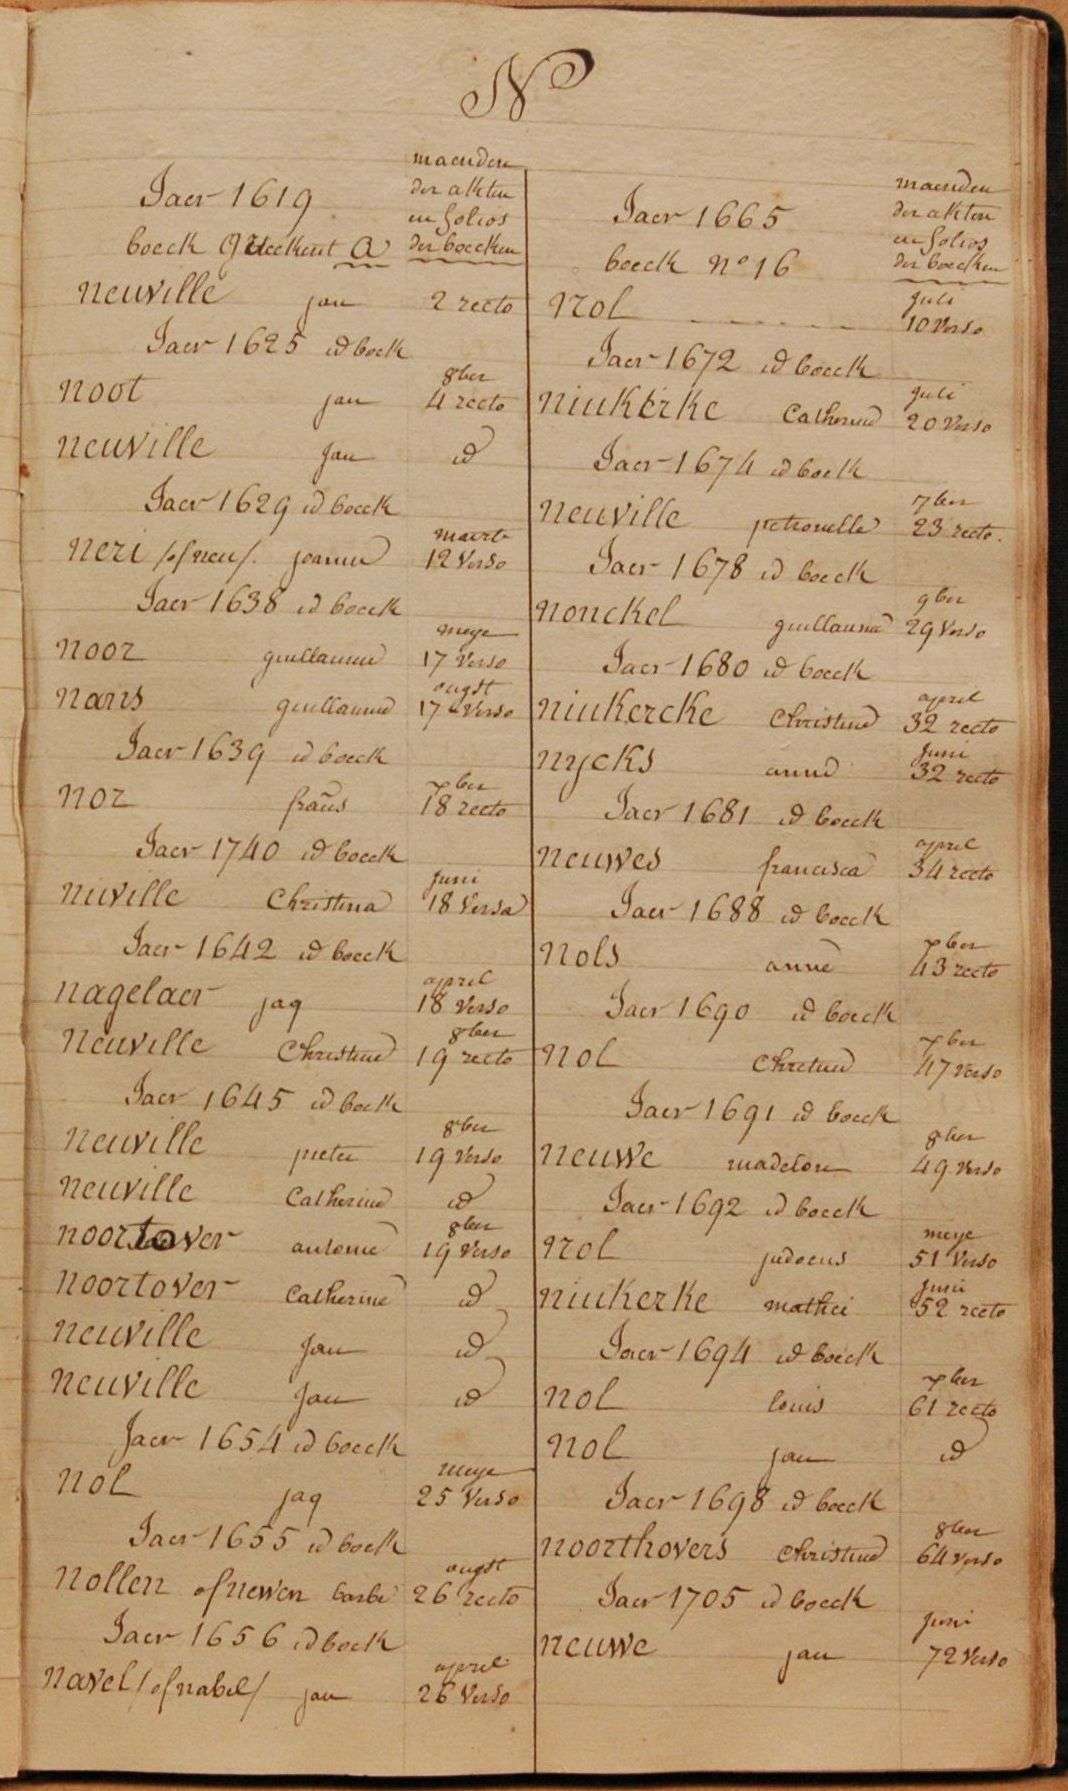 N
maenden
der akten
Jaer 1619
en folios
boeck gteekent A der boecken
neuville jan 2 recto
Jaer 1625 id boek
8ber
noot jan 4 recto
neuville jan id
Jaer 1629 id boeck
maert
neri /of neu/. joanne 12 verso
Jaer 1638 id boeck
meye
noor guillaume 17 verso
ougst
nans guillaume 17 verso
Jaer 1639 id boeck
7ber
nor frans 18 recto
Jaer 1740 id boeck
juni
niville Christina 18 verso
Jaer 1642 id boeck
april
nagelaer jaq 18 verso
8ber
neuville Christine 19 recto
Jaer 1645 id boek
8ber
neuville pieter 19 verso
neuville Catherine id
8ber
noortover antonie 19 verso
noortover Catherine id
neuville Jan id
neuville Jan id
Jaer 1654 id boeck
meye
nol jaq 25 verso
Jaer 1655 id boek
ougst
nollen of newen barbe 26 recto
Jaer 1656 id boek
april
navel /of nabel/ jan 26 verso
maenden
der akten
Jaer 1665
en folios
boeck No 16 der boecken
juli
nol 10 verso
Jaer 1672 id boeck
juli
niukerke Catherine 20 verso
Jaer 1674 id boek
7ber
neuville petronelle 23 recto.
Jaer 1678 id boeck
9ber
nonckel guillaume 29 verso
Jaer 1680 id boeck
april
niukercke Christine 32 recto
juni
nycks anne 32 recto
Jaer 1681 id boeck
april
neuwes francisca 34 recto
Jaer 1688 id boeck
7ber
nols anne 43 recto
Jaer 1690 id boeck
7ber
nol Chretine 47 verso
Jaer 1691 id boeck
8ber
neuwe madelon 49 verso
Jaer 1692 id boeck
meye
nol judocus 51 verso
juni
niukerke mathei 52 recto
Jaer 1694 id boeck
7ber
nol louis 61 recto
nol jan id
Jaer 1698 id boeck
8ber
noorthovers Christine 64 verso
Jaer 1705 id boeck
juni
neuwe jan 72 verso